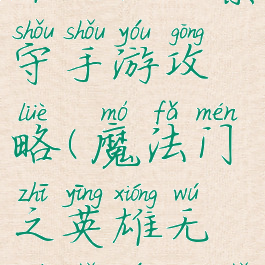 shǒu shǒu yóu gōng
守手游攻
lüè mó fǎ mén
略(魔法门
zhī yīng xióng wú
之英雄无